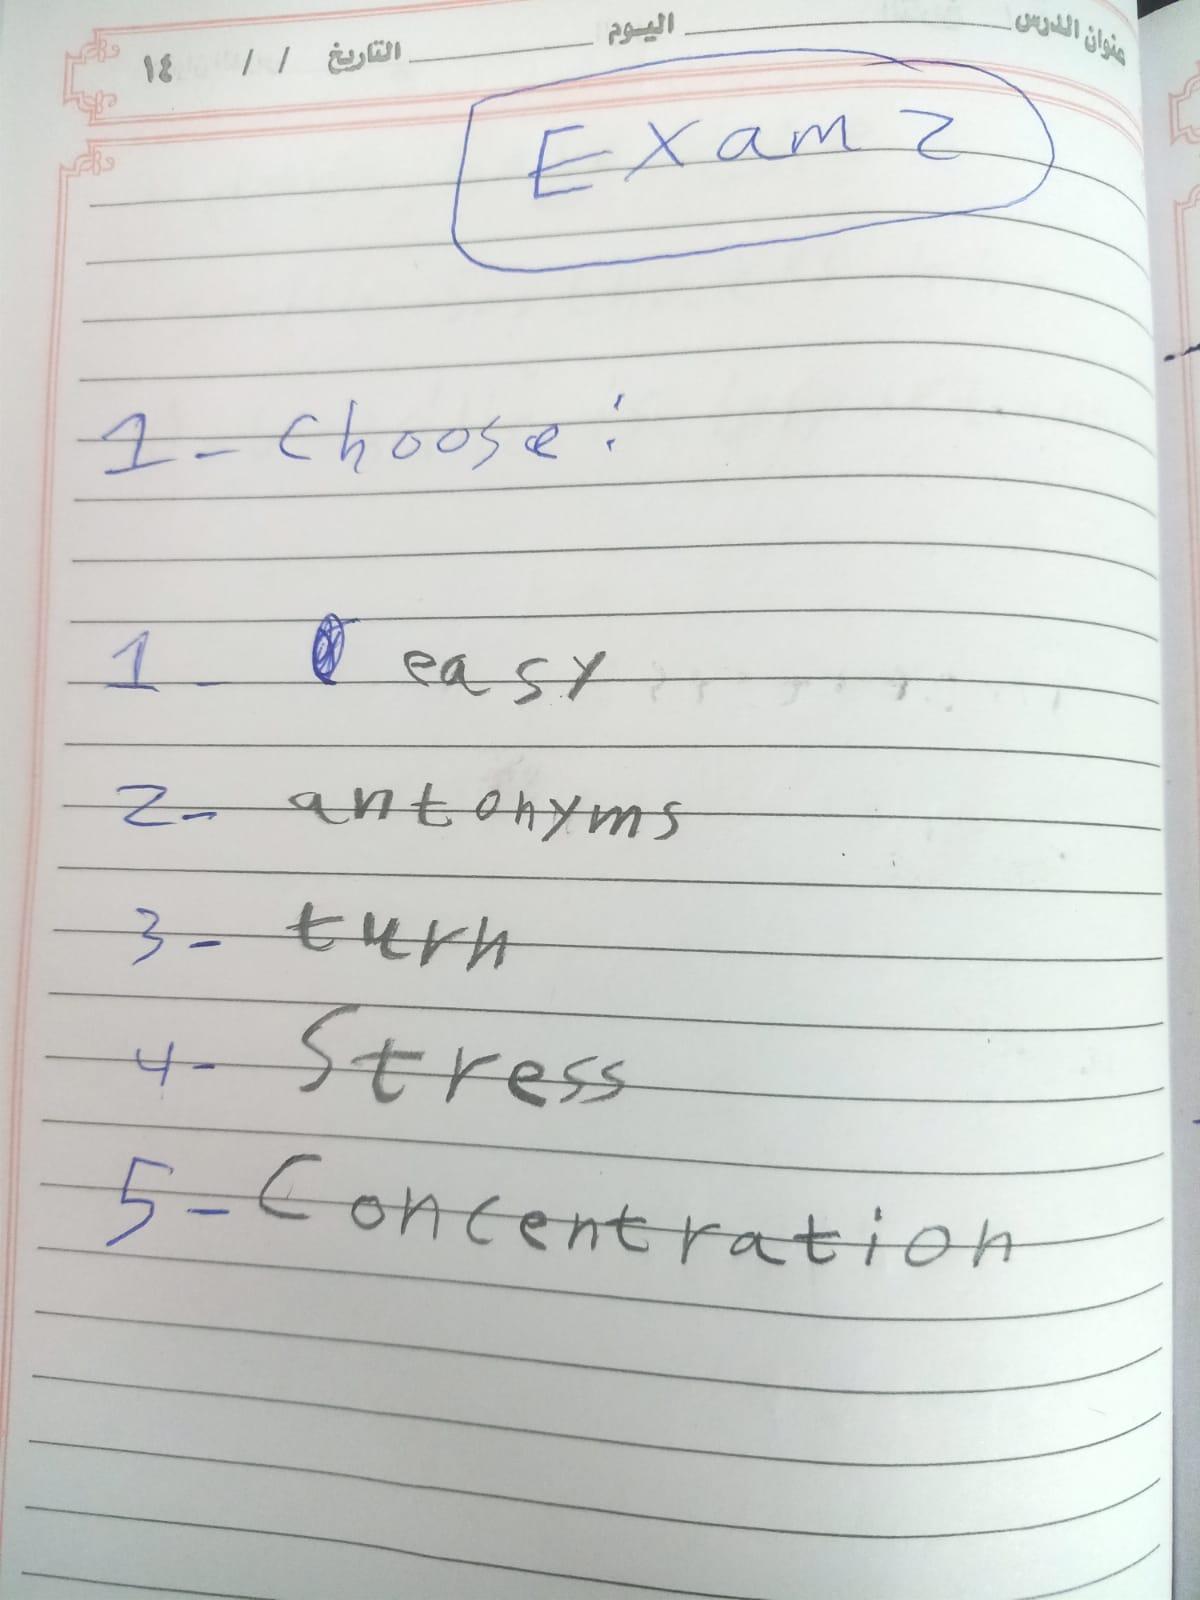 عنوان الدرس ــــــــ اليوم ــــــــ التاريخ / / ١٤
Exam 2
1- Choose:
1- easy
2- antonyms
3- turn
4- Stress
5- Concentration